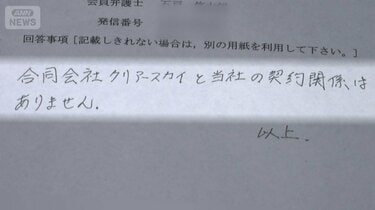 ANN
NEWS
会員弁護士
発信番号
回答事項［記載しきれない場合は，別の用紙を利用して下さい。］
合同会社クリアースカイと当社の契約関係は
ありません．
以上．